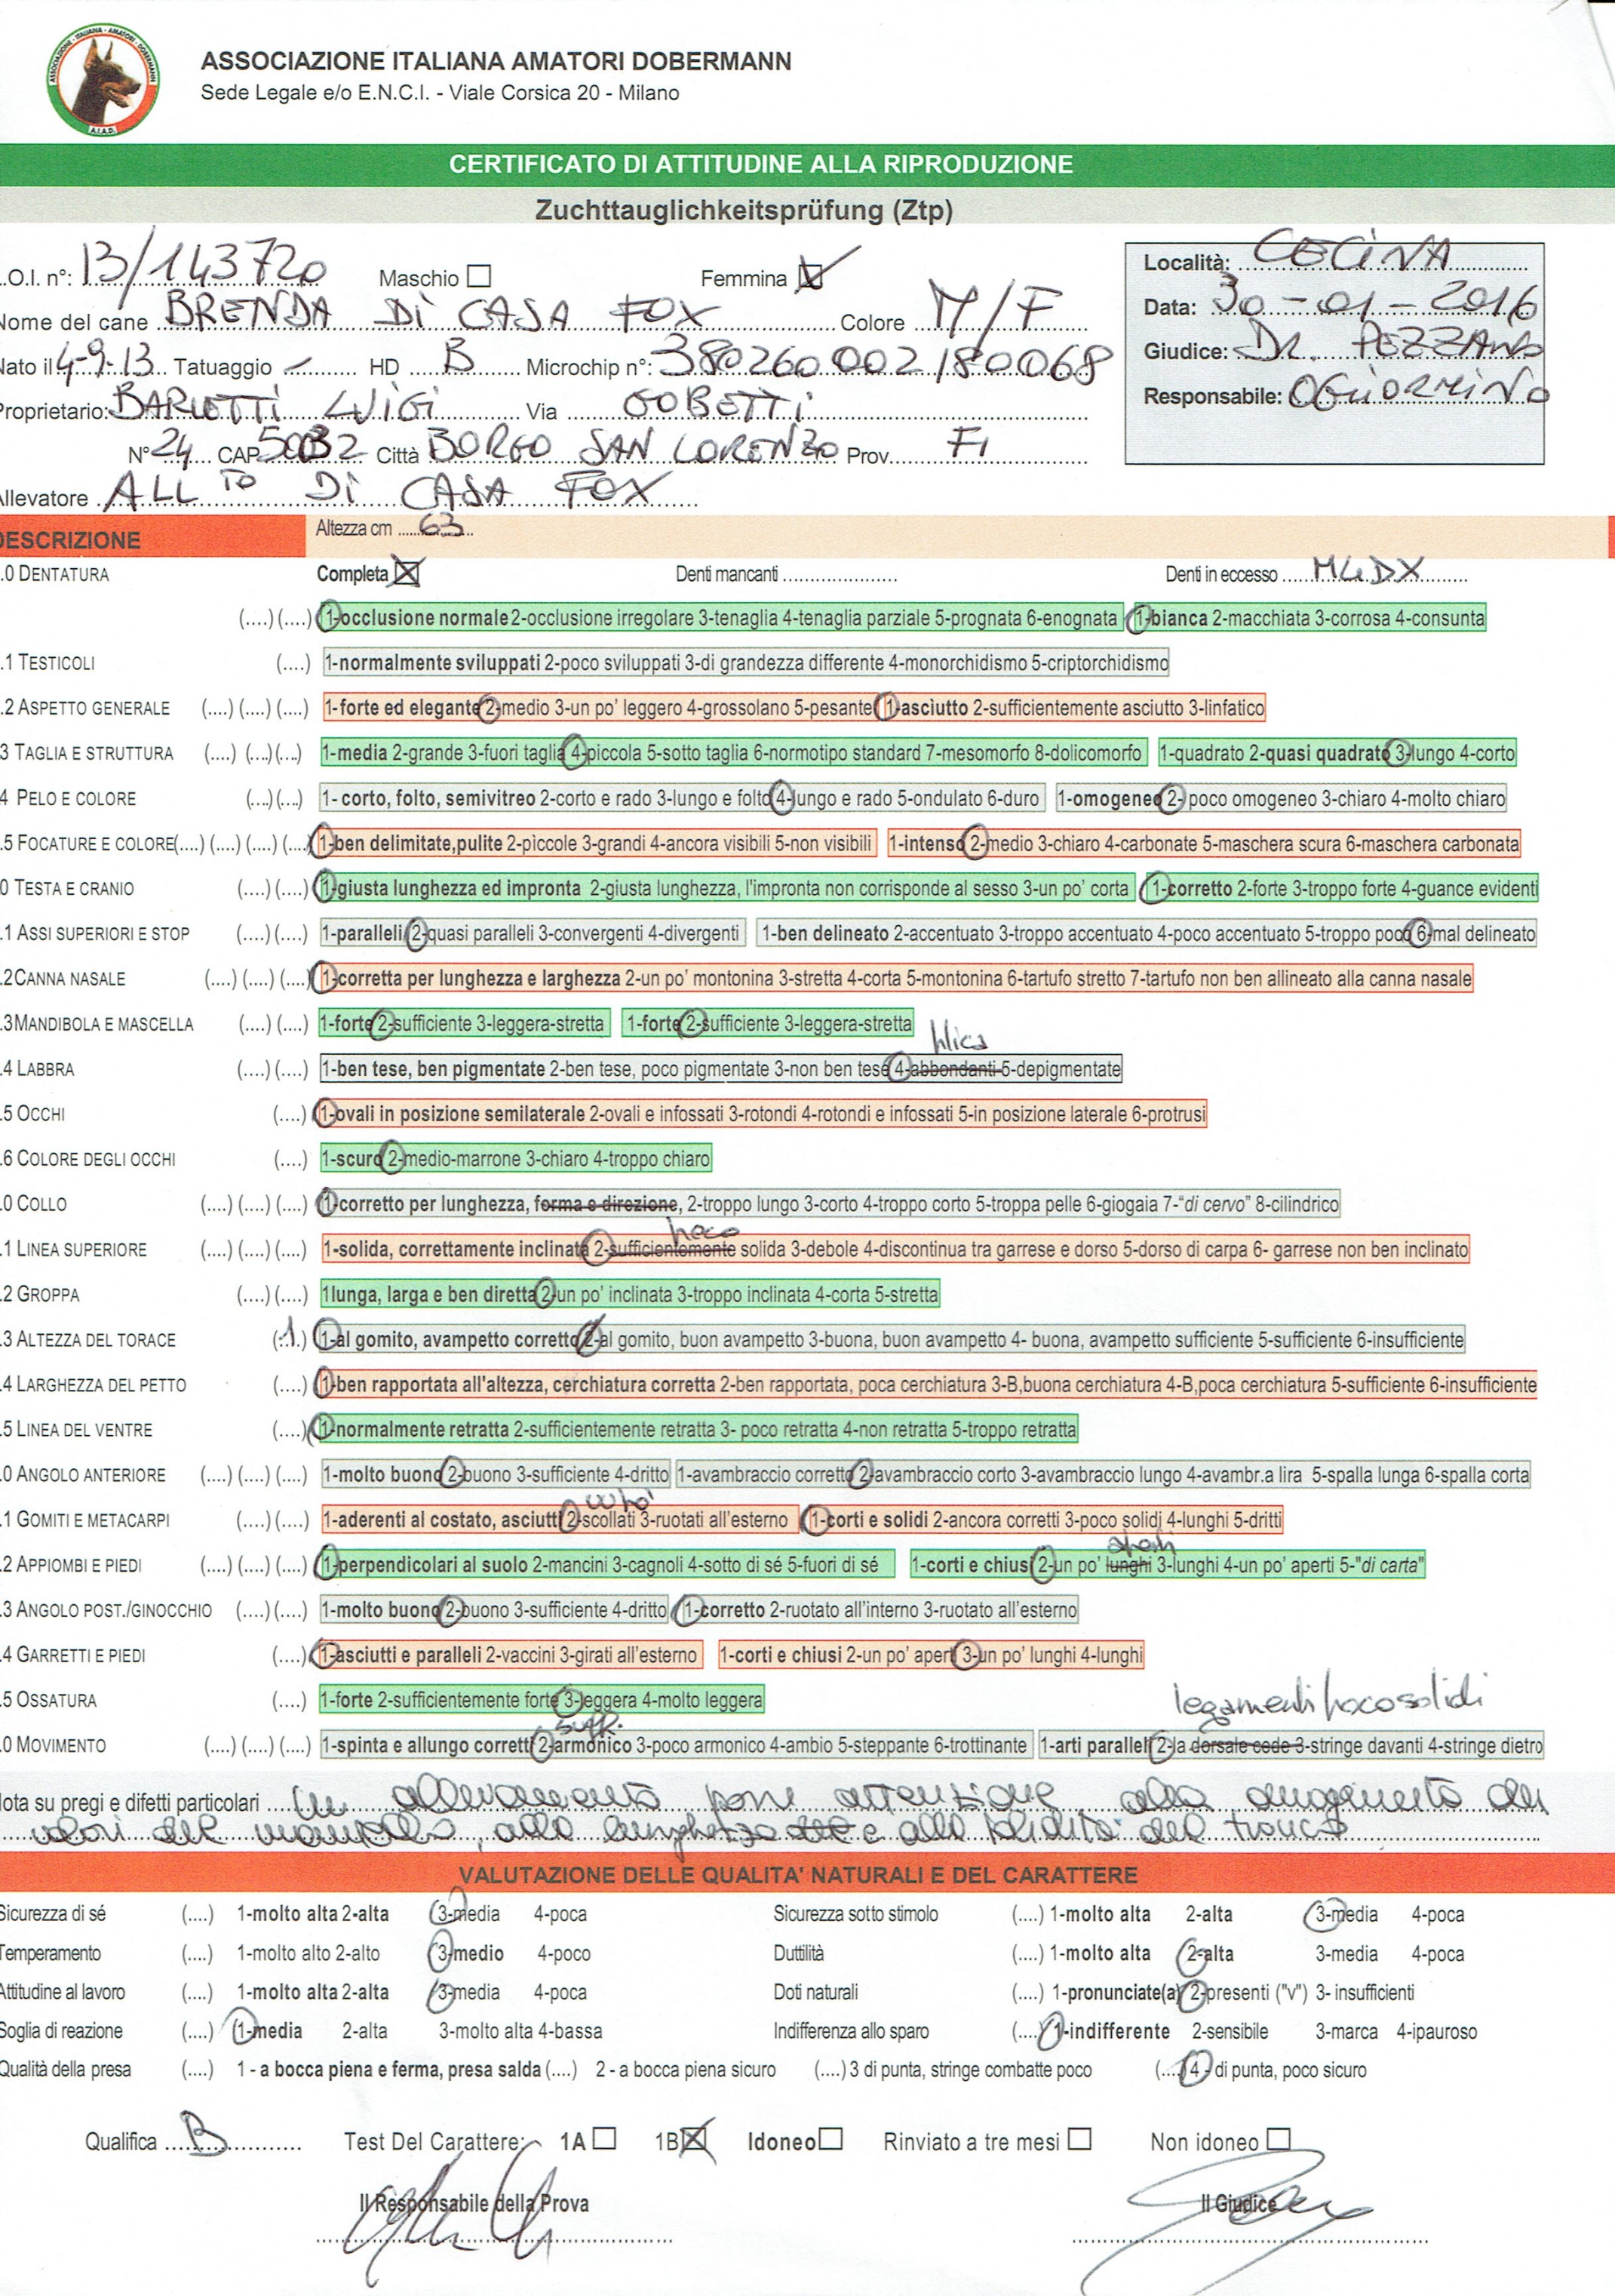 ASSOCIAZIONE ITALIANA AMATORI DOBERMANN
Sede Legale e/o E.N.C.I. - Viale Corsica 20 - Milano
A.I.A.D.
CERTIFICATO DI ATTITUDINE ALLA RIPRODUZIONE
Zuchttauglichkeitsprüfung (Ztp)
.O.I. n°: 13/143720 Maschio ☐ Femmina ☒
Nome del cane BRENDA DI CASA FOX Colore M/F
Nato il 4-9-13 Tatuaggio - HD B Microchip n°: 380260002180068
Proprietario: BARLETTI LUIGI Via GOBETTI
N° 24 CAP 50032 Città BORGO SAN LORENZO Prov. FI
Allevatore ALL TO DI CASA FOX
Località: CECINA
Data: 30-01-2016
Giudice: DR. PEZZANO
Responsabile:
DESCRIZIONE Altezza cm 63
.0 DENTATURA Completa ☒ Denti mancanti .................... Denti in eccesso M4DX
(....) (....) 1-occlusione normale 2-occlusione irregolare 3-tenaglia 4-tenaglia parziale 5-prognata 6-enognata 1-bianca 2-macchiata 3-corrosa 4-consunta
.1 TESTICOLI (....) 1-normalmente sviluppati 2-poco sviluppati 3-di grandezza differente 4-monorchidismo 5-criptorchidismo
.2 ASPETTO GENERALE (....) (....) (....) 1-forte ed elegante 2-medio 3-un po' leggero 4-grossolano 5-pesante 1-asciutto 2-sufficientemente asciutto 3-linfatico
.3 TAGLIA E STRUTTURA (....) (...)(...) 1-media 2-grande 3-fuori taglia 4-piccola 5-sotto taglia 6-normotipo standard 7-mesomorfo 8-dolicomorfo 1-quadrato 2-quasi quadrato 3-lungo 4-corto
4 PELO E COLORE (...)(...) 1- corto, folto, semivitreo 2-corto e rado 3-lungo e folto 4-lungo e rado 5-ondulato 6-duro 1-omogeneo 2- poco omogeneo 3-chiaro 4-molto chiaro
.5 FOCATURE E COLORE(....) (....) (....) (....) 1-ben delimitate,pulite 2-piccole 3-grandi 4-ancora visibili 5-non visibili 1-intenso 2-medio 3-chiaro 4-carbonate 5-maschera scura 6-maschera carbonata
0 TESTA E CRANIO (....) (....) 1-giusta lunghezza ed impronta 2-giusta lunghezza, l'impronta non corrisponde al sesso 3-un po' corta 1-corretto 2-forte 3-troppo forte 4-guance evidenti
.1 ASSI SUPERIORI E STOP (....) (....) 1-paralleli 2-quasi paralleli 3-convergenti 4-divergenti 1-ben delineato 2-accentuato 3-troppo accentuato 4-poco accentuato 5-troppo poco 6-mal delineato
.2CANNA NASALE (....) (....) (....) 1-corretta per lunghezza e larghezza 2-un po' montonina 3-stretta 4-corta 5-montonina 6-tartufo stretto 7-tartufo non ben allineato alla canna nasale
.3MANDIBOLA E MASCELLA (....) (....) 1-forte 2-sufficiente 3-leggera-stretta 1-forte 2-sufficiente 3-leggera-stretta
.4 LABBRA (....) (....) 1-ben tese, ben pigmentate 2-ben tese, poco pigmentate 3-non ben tese 4-abbondanti 5-depigmentate
.5 OCCHI (....) 1-ovali in posizione semilaterale 2-ovali e infossati 3-rotondi 4-rotondi e infossati 5-in posizione laterale 6-protrusi
.6 COLORE DEGLI OCCHI (....) 1-scuro 2-medio-marrone 3-chiaro 4-troppo chiaro
.0 COLLO (....) (....) (....) 1-corretto per lunghezza, forma e direzione, 2-troppo lungo 3-corto 4-troppo corto 5-troppa pelle 6-giogaia 7-“di cervo” 8-cilindrico
poco
.1 LINEA SUPERIORE (....) (....) (....) 1-solida, correttamente inclinata 2-sufficientemente solida 3-debole 4-discontinua tra garrese e dorso 5-dorso di carpa 6- garrese non ben inclinato
.2 GROPPA (....) (....) 1lunga, larga e ben diretta 2-un po' inclinata 3-troppo inclinata 4-corta 5-stretta
.3 ALTEZZA DEL TORACE (.1.) 1-al gomito, avampetto corretto 2-al gomito, buon avampetto 3-buona, buon avampetto 4- buona, avampetto sufficiente 5-sufficiente 6-insufficiente
.4 LARGHEZZA DEL PETTO (....) 1-ben rapportata all'altezza, cerchiatura corretta 2-ben rapportata, poca cerchiatura 3-B,buona cerchiatura 4-B,poca cerchiatura 5-sufficiente 6-insufficiente
.5 LINEA DEL VENTRE (....) 1-normalmente retratta 2-sufficientemente retratta 3- poco retratta 4-non retratta 5-troppo retratta
.0 ANGOLO ANTERIORE (....) (....) (....) 1-molto buono 2-buono 3-sufficiente 4-dritto 1-avambraccio corretto 2-avambraccio corto 3-avambraccio lungo 4-avambr.a lira 5-spalla lunga 6-spalla corta
un po'
.1 GOMITI E METACARPI (....) (....) 1-aderenti al costato, asciutti 2-scollati 3-ruotati all'esterno 1-corti e solidi 2-ancora corretti 3-poco solidi 4-lunghi 5-dritti
aperti
.2 APPIOMBI E PIEDI (....) (....) (....) 1-perpendicolari al suolo 2-mancini 3-cagnoli 4-sotto di sé 5-fuori di sé 1-corti e chiusi 2-un po' lunghi 3-lunghi 4-un po' aperti 5-"di carta"
.3 ANGOLO POST./GINOCCHIO (....) (....) 1-molto buono 2-buono 3-sufficiente 4-dritto 1-corretto 2-ruotato all'interno 3-ruotato all'esterno
.4 GARRETTI E PIEDI (....) 1-asciutti e paralleli 2-vaccini 3-girati all'esterno 1-corti e chiusi 2-un po' aperti 3-un po' lunghi 4-lunghi
.5 OSSATURA (....) 1-forte 2-sufficientemente forte 3-leggera 4-molto leggera
suff. legamenti poco solidi
.0 MOVIMENTO (....) (....) (....) 1-spinta e allungo corretti 2-armonico 3-poco armonico 4-ambio 5-steppante 6-trottinante 1-arti paralleli 2-la dorsale cede 3-stringe davanti 4-stringe dietro
Nota su pregi e difetti particolari In allevamento porre attenzione alla omogeneità dei
valori del mantello, alla lunghezza e alla solidità del tronco
VALUTAZIONE DELLE QUALITA' NATURALI E DEL CARATTERE
Sicurezza di sé (....) 1-molto alta 2-alta 3-media 4-poca Sicurezza sotto stimolo (....) 1-molto alta 2-alta 3-media 4-poca
Temperamento (....) 1-molto alto 2-alto 3-medio 4-poco Duttilità (....) 1-molto alta 2-alta 3-media 4-poca
Attitudine al lavoro (....) 1-molto alta 2-alta 3-media 4-poca Doti naturali (....) 1-pronunciate(a) 2-presenti ("v") 3- insufficienti
Soglia di reazione (....) 1-media 2-alta 3-molto alta 4-bassa Indifferenza allo sparo (....) 1-indifferente 2-sensibile 3-marca 4-ipauroso
Qualità della presa (....) 1 - a bocca piena e ferma, presa salda (....) 2 - a bocca piena sicuro (....) 3 di punta, stringe combatte poco (....) 4 - di punta, poco sicuro
Qualifica B Test Del Carattere: 1A ☐ 1B ☒ Idoneo ☐ Rinviato a tre mesi ☐ Non idoneo ☐
Il Responsabile della Prova Il Giudice